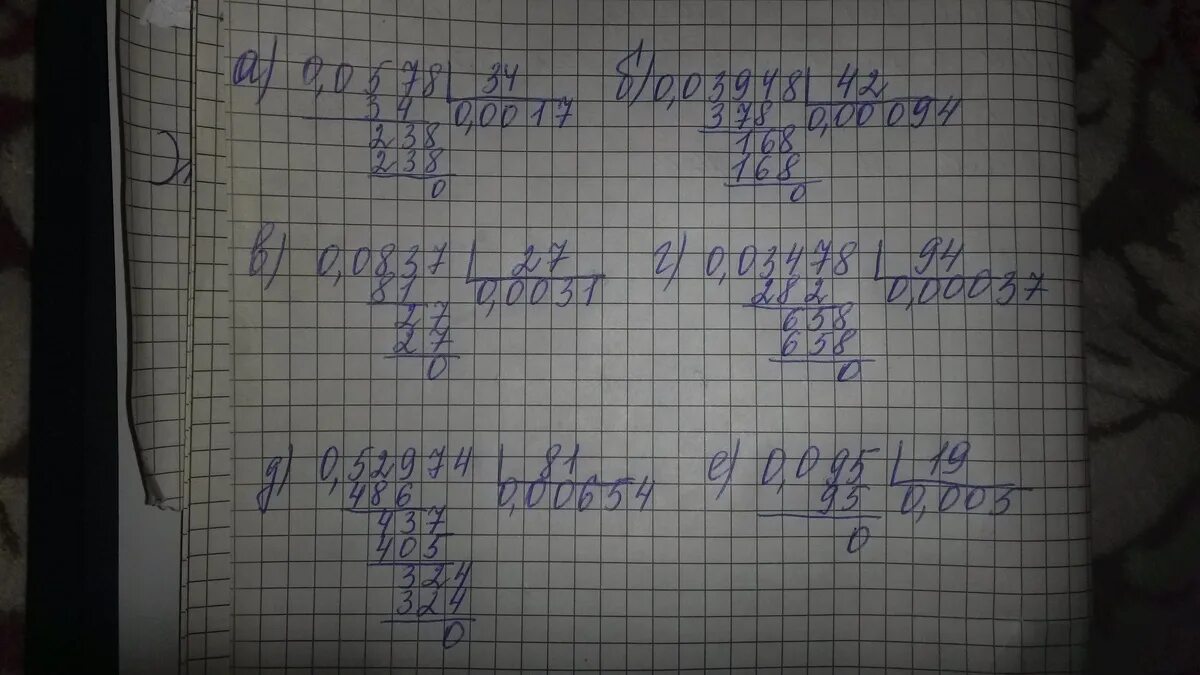 а) 0,0578 34
34 0,0017
238
238
0
б) 0,03948 42
378 0,00094
168
168
0
в) 0,0837 27
81 0,0031
27
27
0
г) 0,03478 94
282 0,00037
658
658
0
д) 0,52974 81
486 0,00654
437
405
324
324
0
е) 0,095 19
95 0,005
0